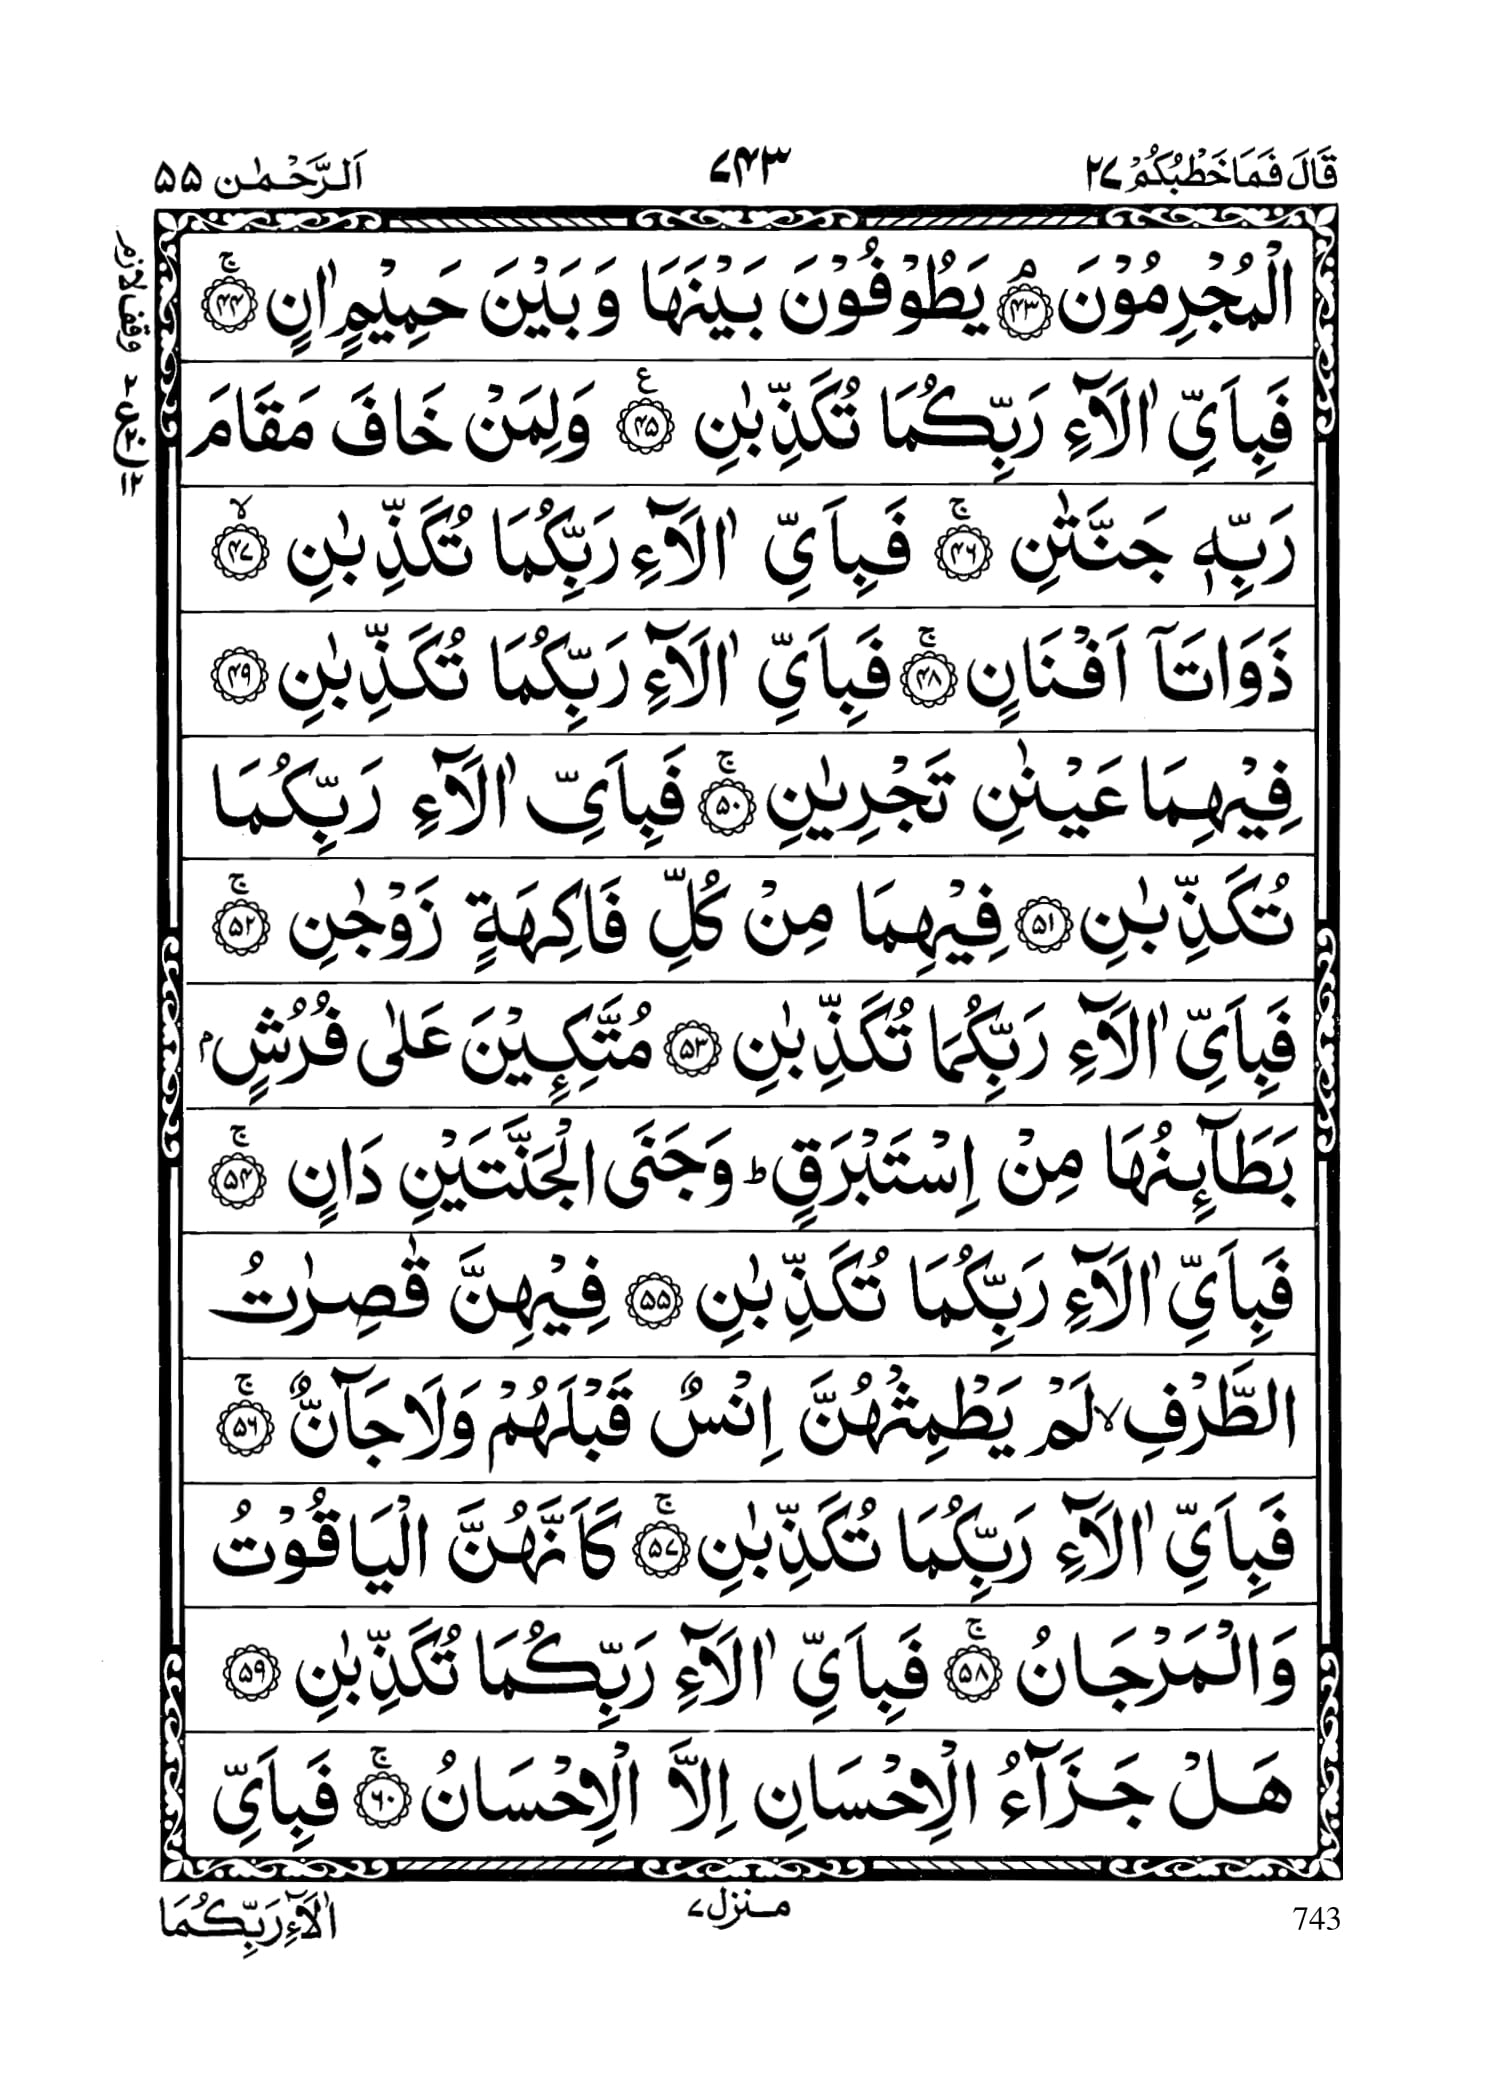 قَالَ فَمَا خَطْبُكُمْ ۲۷ ۷۴۳ اَلرَّحْمٰن ۵۵
الْمُجْرِمُوْنَ ۘ﴿۴۳﴾ يَطُوْفُوْنَ بَيْنَهَا وَبَيْنَ حَمِيْمٍ اٰنٍ ۚ﴿۴۴﴾
وقف لازم
فَبِاَيِّ اٰلَآءِ رَبِّكُمَا تُكَذِّبٰنِ ﴿۴۵﴾ ع وَلِمَنْ خَافَ مَقَامَ
۲ ع ۱۲
رَبِّهٖ جَنَّتٰنِ ۚ﴿۴۶﴾ فَبِاَيِّ اٰلَآءِ رَبِّكُمَا تُكَذِّبٰنِ ۙ﴿۴۷﴾
ذَوَاتَآ اَفْنَانٍ ۚ﴿۴۸﴾ فَبِاَيِّ اٰلَآءِ رَبِّكُمَا تُكَذِّبٰنِ ﴿۴۹﴾
فِيْهِمَا عَيْنٰنِ تَجْرِيٰنِ ۚ﴿۵۰﴾ فَبِاَيِّ اٰلَآءِ رَبِّكُمَا
تُكَذِّبٰنِ ﴿۵۱﴾ فِيْهِمَا مِنْ كُلِّ فَاكِهَةٍ زَوْجٰنِ ۚ﴿۵۲﴾
فَبِاَيِّ اٰلَآءِ رَبِّكُمَا تُكَذِّبٰنِ ﴿۵۳﴾ مُتَّكِـِٕيْنَ عَلٰى فُرُشٍۭ
بَطَآئِنُهَا مِنْ اِسْتَبْرَقٍ ؕ وَجَنَى الْجَنَّتَيْنِ دَانٍ ۚ﴿۵۴﴾
فَبِاَيِّ اٰلَآءِ رَبِّكُمَا تُكَذِّبٰنِ ﴿۵۵﴾ فِيْهِنَّ قٰصِرٰتُ
الطَّرْفِ ۙ لَمْ يَطْمِثْهُنَّ اِنْسٌ قَبْلَهُمْ وَلَا جَآنٌّ ۚ﴿۵۶﴾
فَبِاَيِّ اٰلَآءِ رَبِّكُمَا تُكَذِّبٰنِ ۚ﴿۵۷﴾ كَاَنَّهُنَّ الْيَاقُوْتُ
وَالْمَرْجَانُ ۚ﴿۵۸﴾ فَبِاَيِّ اٰلَآءِ رَبِّكُمَا تُكَذِّبٰنِ ﴿۵۹﴾
هَلْ جَزَآءُ الْاِحْسَانِ اِلَّا الْاِحْسَانُ ۚ﴿۶۰﴾ فَبِاَيِّ
743 منزل ۷ اٰلَآءِ رَبِّكُمَا